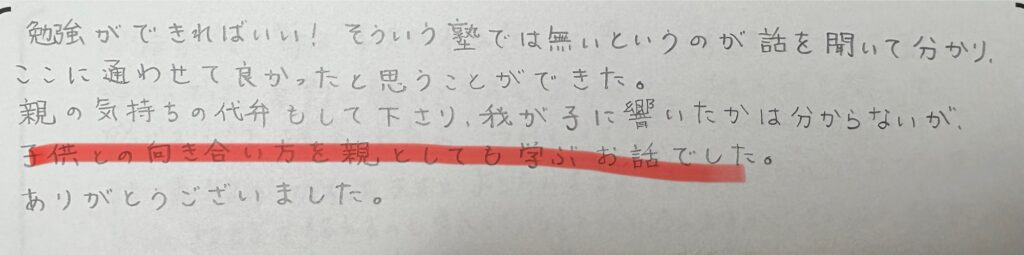 勉強ができればいい！そういう塾では無いというのが話を聞いて分かり、
ここに通わせて良かったと思うことができた。
親の気持ちの代弁もして下さり、我が子に響いたかは分からないが、
子供との向き合い方を親としても学ぶお話でした。
ありがとうございました。